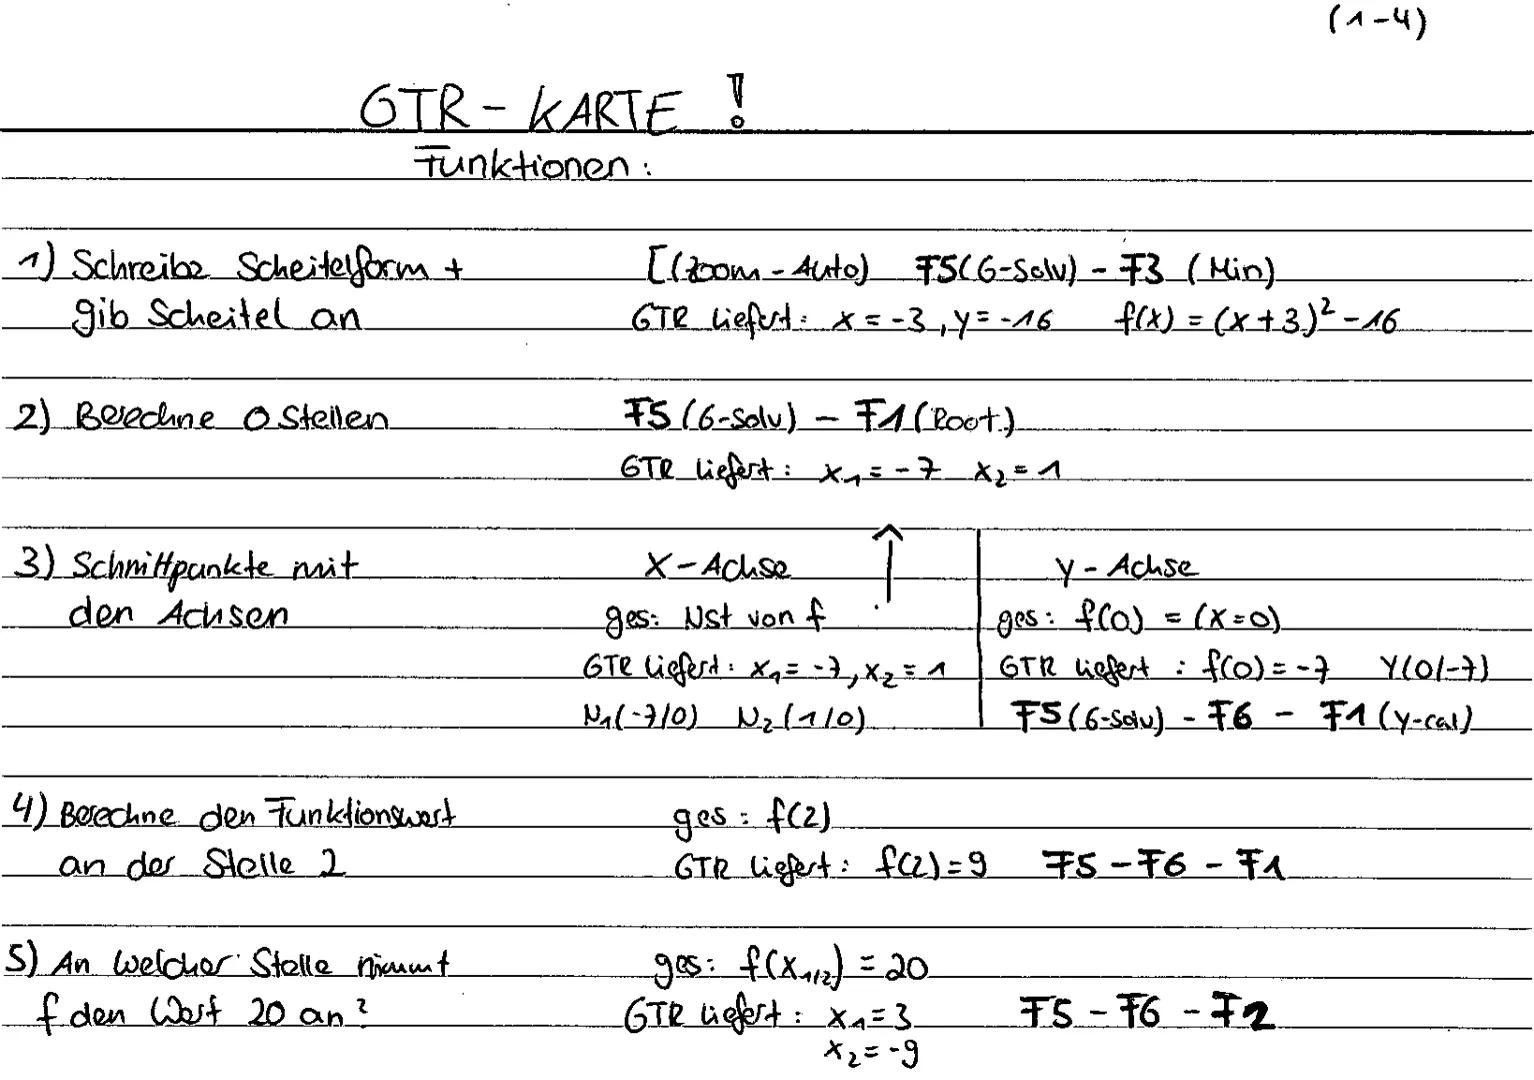 (1-4)
GTR - KARTE !
Funktionen:
1) Schreibe Scheitelform + [(Zoom - Auto) F5(G-Solv) - F3 (Min)
gib Scheitel an GTR liefert: x = -3, y = -16 f(x) = (x+3)² - 16
2) Berechne 0 Stellen F5 (G-Solv) - F1 (Root)
GTR liefert: x₁ = -7 x₂ = 1
3) Schnittpunkte mit X-Achse ↑ y-Achse
den Achsen ges: Nst von f ges: f(0) = (x=0)
GTR liefert: x₁ = -7, x₂ = 1 GTR liefert: f(0) = -7 Y(0/-7)
N₁(-7/0) N₂(1/0) F5 (G-Solv) - F6 - F1 (y-cal)
4) Berechne den Funktionswert ges: f(2)
an der Stelle 2 GTR liefert: f(2) = 9 F5 - F6 - F1
5) An welcher Stelle nimmt ges: f(x₁/₂) = 20
f den Wert 20 an? GTR liefert: x₁ = 3 F5 - F6 - F2
x₂ = -9